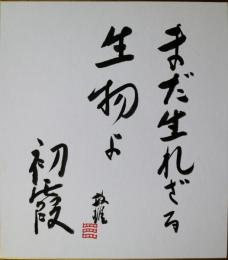 まだ生れざる
生物よ
初霞